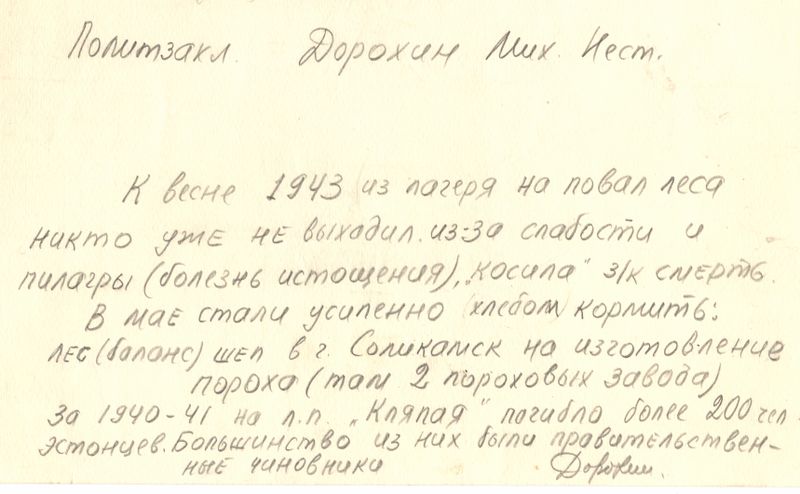 Политзакл. Дорохин Мих. Нест.
К весне 1943 из лагеря на повал леса
никто уже не выходил из-за слабости и
пилагры (болезнь истощения), „косила" з/к смерть.
В мае стали усиленно (хлебом кормить:
лес (баланс) шел в г. Соликамск на изготовление
пороха (там 2 пороховых завода)
За 1940-41 на л.п. „Кляпая" погибло более 200 чел.
эстонцев. Большинство из них были правительствен-
ные чиновники Дорохин.